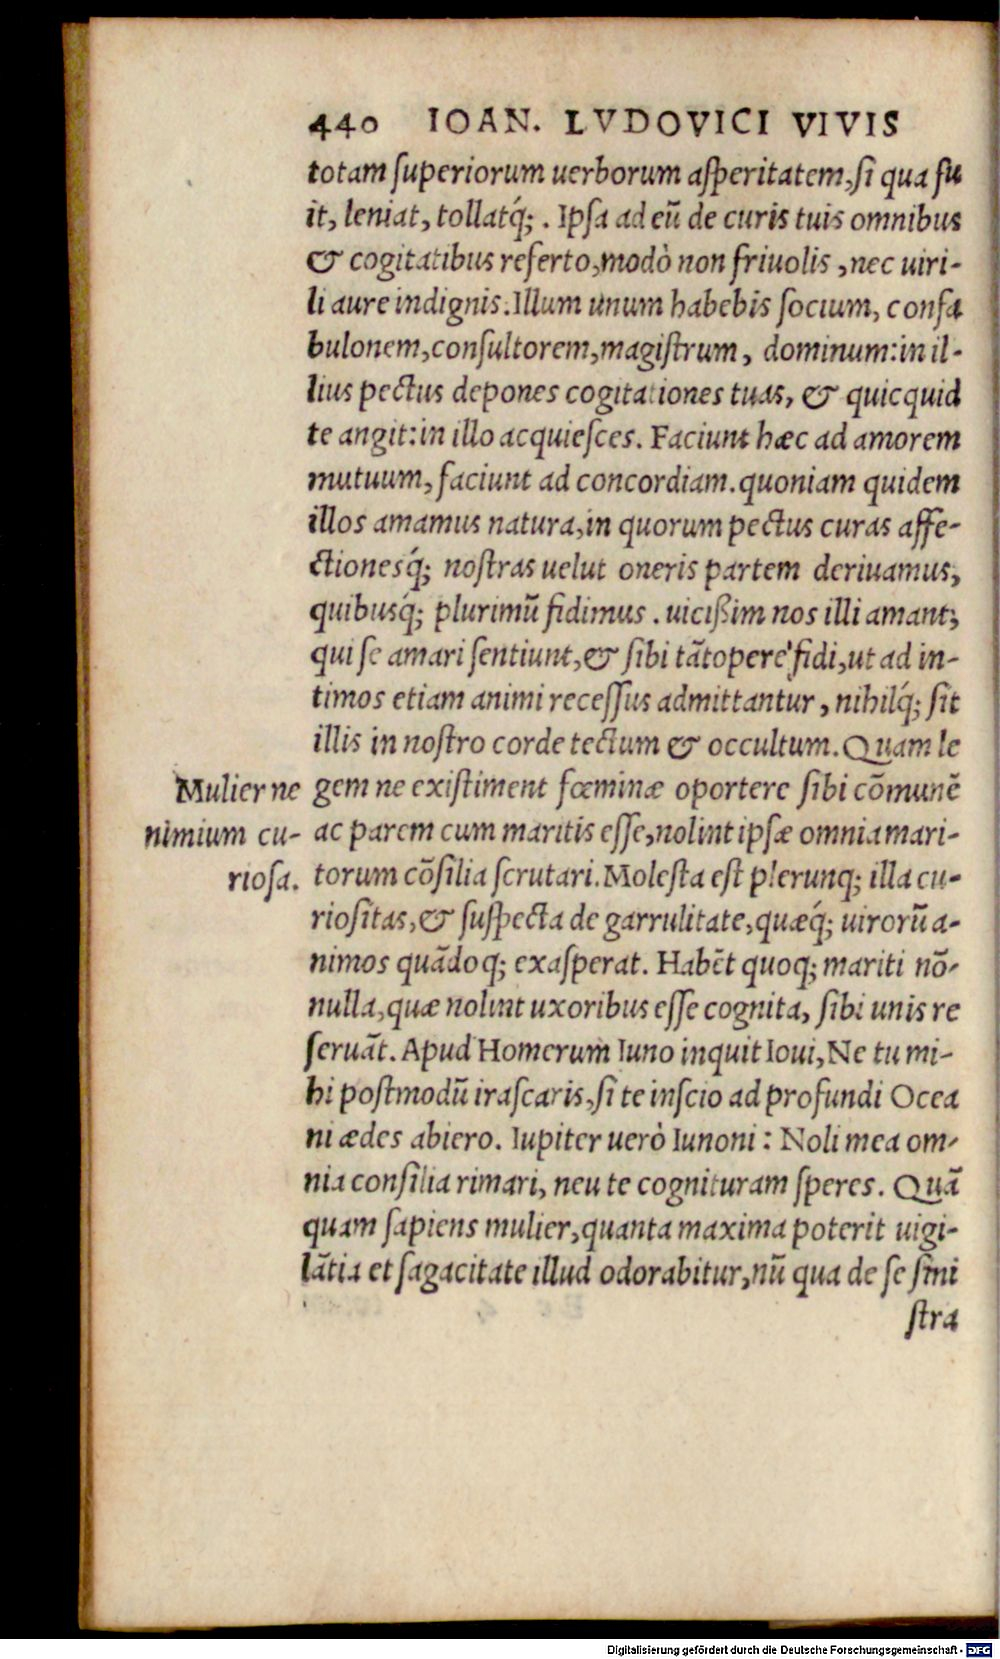 440 IOAN. LVDOVICI VIVIS
totam ſuperiorum uerborum aſperitatem, ſi qua fu
it, leniat, tollatq́;. Ipſa ad eũ de curis tuis omnibus
& cogitatibus referto, modò non friuolis, nec uiri-
li aure indignis: Illum unum habebis ſocium, confa
bulonem, conſultorem, magiſtrum, dominum: in il-
lius pectus depones cogitationes tuas, & quicquid
te angit: in illo acquieſces. Faciunt hæc ad amorem
mutuum, faciunt ad concordiam. quoniam quidem
illos amamus natura, in quorum pectus curas affe-
ctionesq́; noſtras uelut oneris partem deriuamus,
quibusq́; plurimũ fidimus. uicißim nos illi amant,
qui ſe amari ſentiunt, & ſibi tãtopere fidi, ut ad in-
timos etiam animi receſſus admittantur, nihilq́; ſit
illis in noſtro corde tectum & occultum. Quam le
Mulier ne
gem ne exiſtiment fœminæ oportere ſibi cõmunẽ
nimium cu-
ac parem cum maritis eſſe, nolint ipſæ omnia mari-
rioſa.
torum cõſilia ſcrutari. Moleſta eſt plerunq; illa cu-
rioſitas, & ſuſpecta de garrulitate, quæq́; uirorũ a-
nimos quãdoq; exaſperat. Habẽt quoq; mariti nõ-
nulla, quæ nolint uxoribus eſſe cognita, ſibi unis re
ſeruãt. Apud Homerum Iuno inquit Ioui, Ne tu mi-
hi poſtmodũ iraſcaris, ſi te inſcio ad profundi Ocea
ni ædes abiero. Iupiter uerò Iunoni: Noli mea om-
nia conſilia rimari, neu te cognituram ſperes. Quã
quam ſapiens mulier, quanta maxima poterit uigi-
lãtia et ſagacitate illud odorabitur, nũ qua de ſe ſini
ſtra
Digitalisierung gefördert durch die Deutsche Forschungsgemeinschaft - DFG